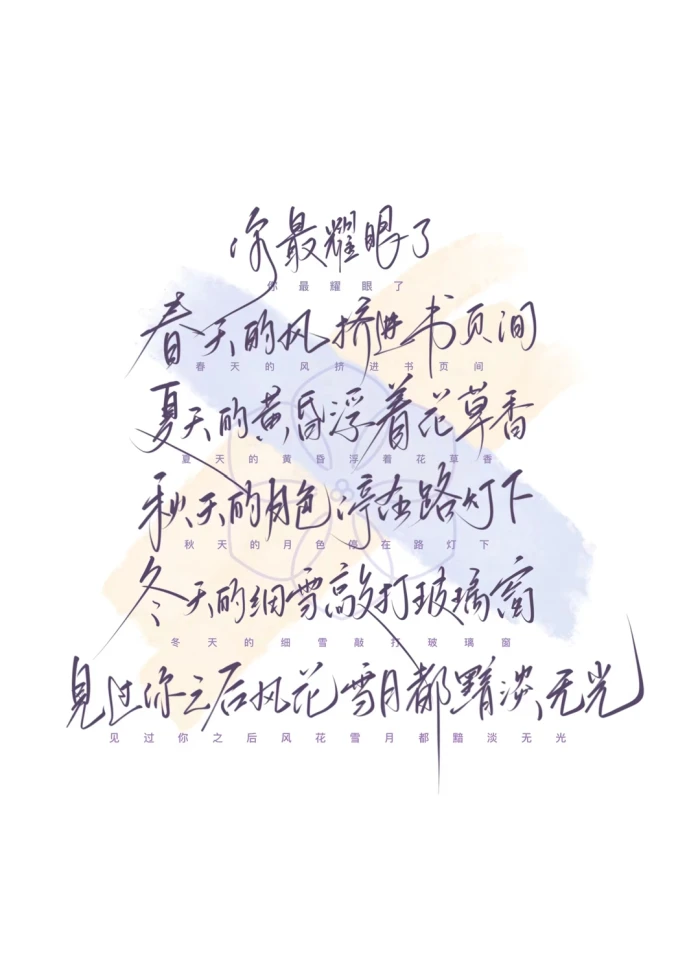 你最耀眼了
你最耀眼了
春天的风挤进书页间
春天的风挤进书页间
夏天的黄昏浮着花草香
夏天的黄昏浮着花草香
秋天的月色停在路灯下
秋天的月色停在路灯下
冬天的细雪敲打玻璃窗
冬天的细雪敲打玻璃窗
見过你之后风花雪月都黯淡无光
见过你之后风花雪月都黯淡无光